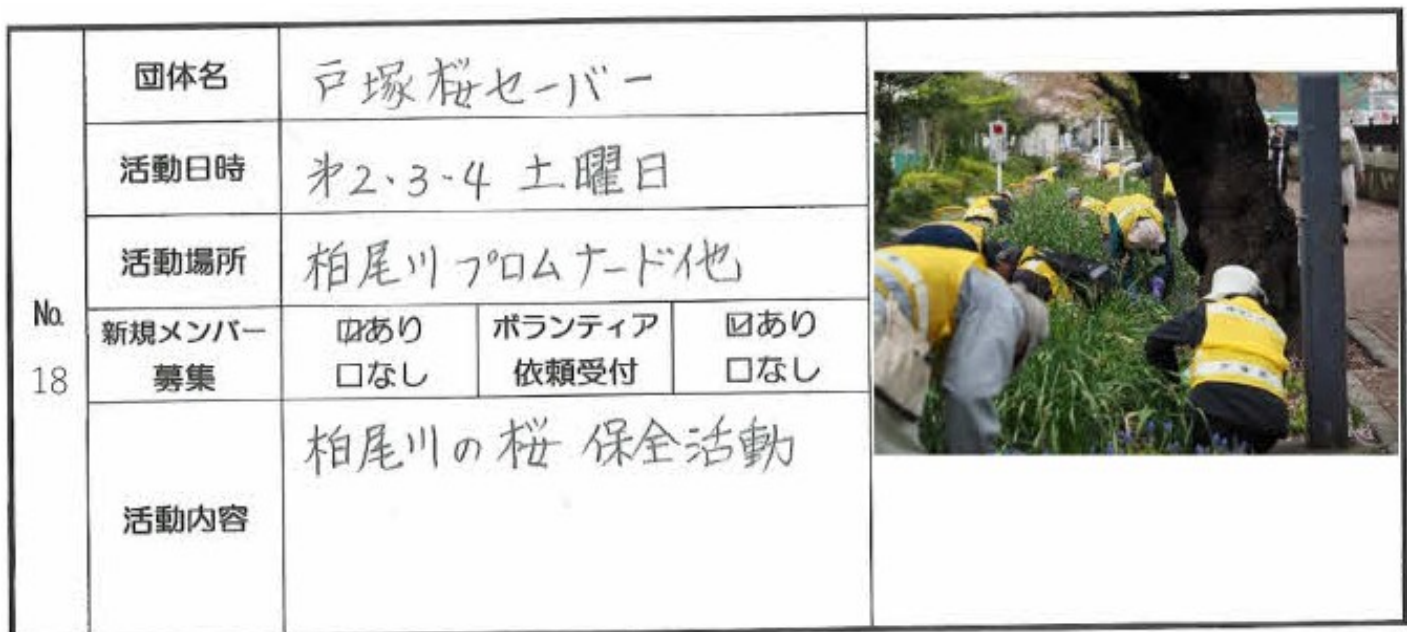 No.
18
団体名
戸塚桜セーバー
活動日時
第2・3・4 土曜日
活動場所
柏尾川プロムナード他
新規メンバー
募集
☑あり
☐なし
ボランティア
依頼受付
☑あり
☐なし
活動内容
柏尾川の桜 保全活動